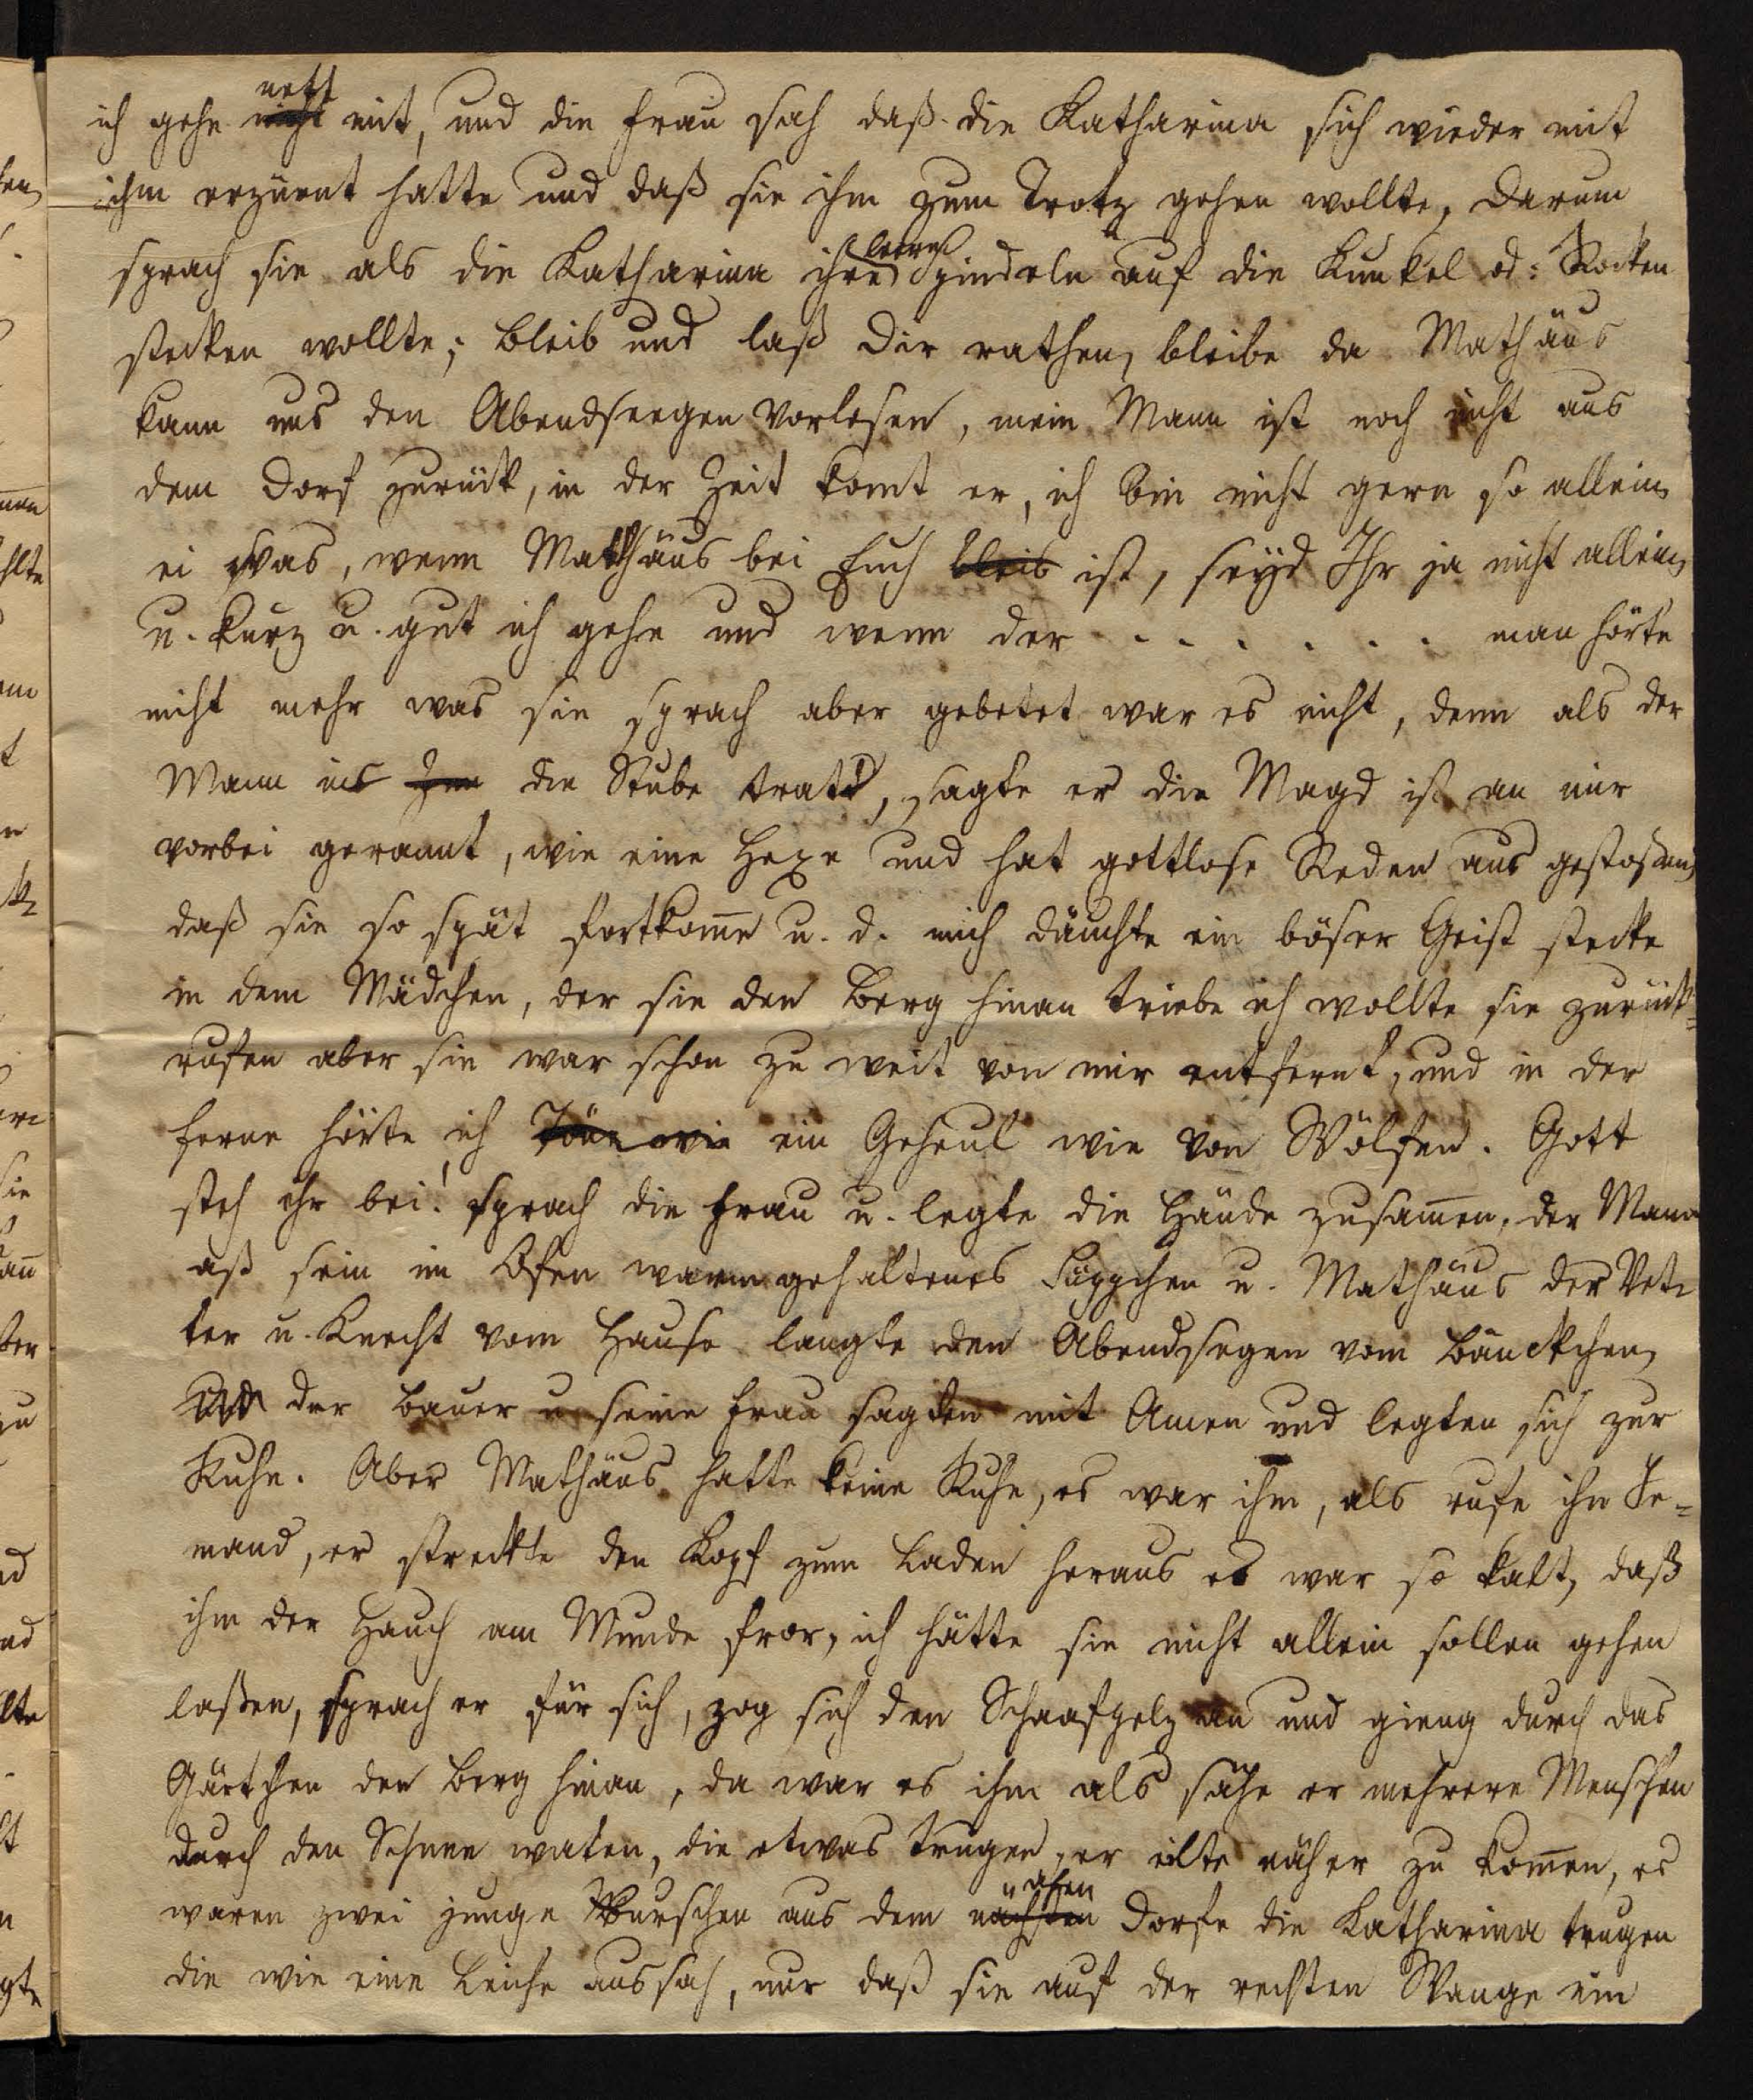 ich gehe nett mit, und die Frau sah daß die Katharina sich wieder mit
ihm erzürnt hatte und daß sie ihm zum Trotz gehen wollte, darum
sprach sie als die Katharina ihre leere Spindeln auf die Kunkel od: Rocken
stecken wollte; bleib und laß dir rathen, bleibe da Mathäus
kann uns den Abendseegen vorlesen, mein Mann ist noch nicht aus
dem Dorf zurück, in der Zeit komt er, ich bin nicht gern so allein,
ei was, wenn Mathäus bei Euch bleib ist, seyd Ihr ja nicht allein,
u. kurz u. gut ich gehe und wenn der . . . . . . . man hörte
nicht mehr was sie sprach aber gebetet war es nicht, denn als der
Mann in die Stube trat, sagte er die Magd ist an mir
vorbei gerannt, wie eine Hexe und hat gottlose Reden aus gestosen,
daß sie so spät fortkome u. d. mich däuchte ein böser Geist stecke
in dem Mädchen, der sie den Berg hinan triebe ich wollte sie zurück=
rufen aber sie war schon zu weit von mir entfernt, und in der
ferne hörte ich Töne wie ein Geheul wie von Wölfen. Gott
steh ihr bei! sprach die Frau u. legte die Hände zusamen, der Mann
aß sein im Ofen warm gehaltenes Süppchen u. Mathäus der Vet-
ter u. Knecht vom Hause langte den Abendsegen vom Bänckchen,
der Bauer u seine Frau sagden mit Amen und legten sich zur
Ruhe. Aber Mathäus hatte keine Ruhe, es war ihm, als rufe ihn Je=
mand, er streckte den Kopf zum Laden heraus es war so kalt, daß
ihm der Hauch am Munde fror, ich hätte sie nicht allein sollen gehen
laßen, sprach er für sich, zog sich den Schaafpelz an und gieng durch das
Gärtchen den Berg hinan, da war es ihm als sähe er mehrere Menschen
durch den Schnee waten, die etwas trugen, er eilte näher zu komen, es
waren zwei junge Burschen aus dem nächsten nahen Dorfe die Katharina trugen
die wie eine Leiche aussah, nur daß sie auf der rechten Wange ein